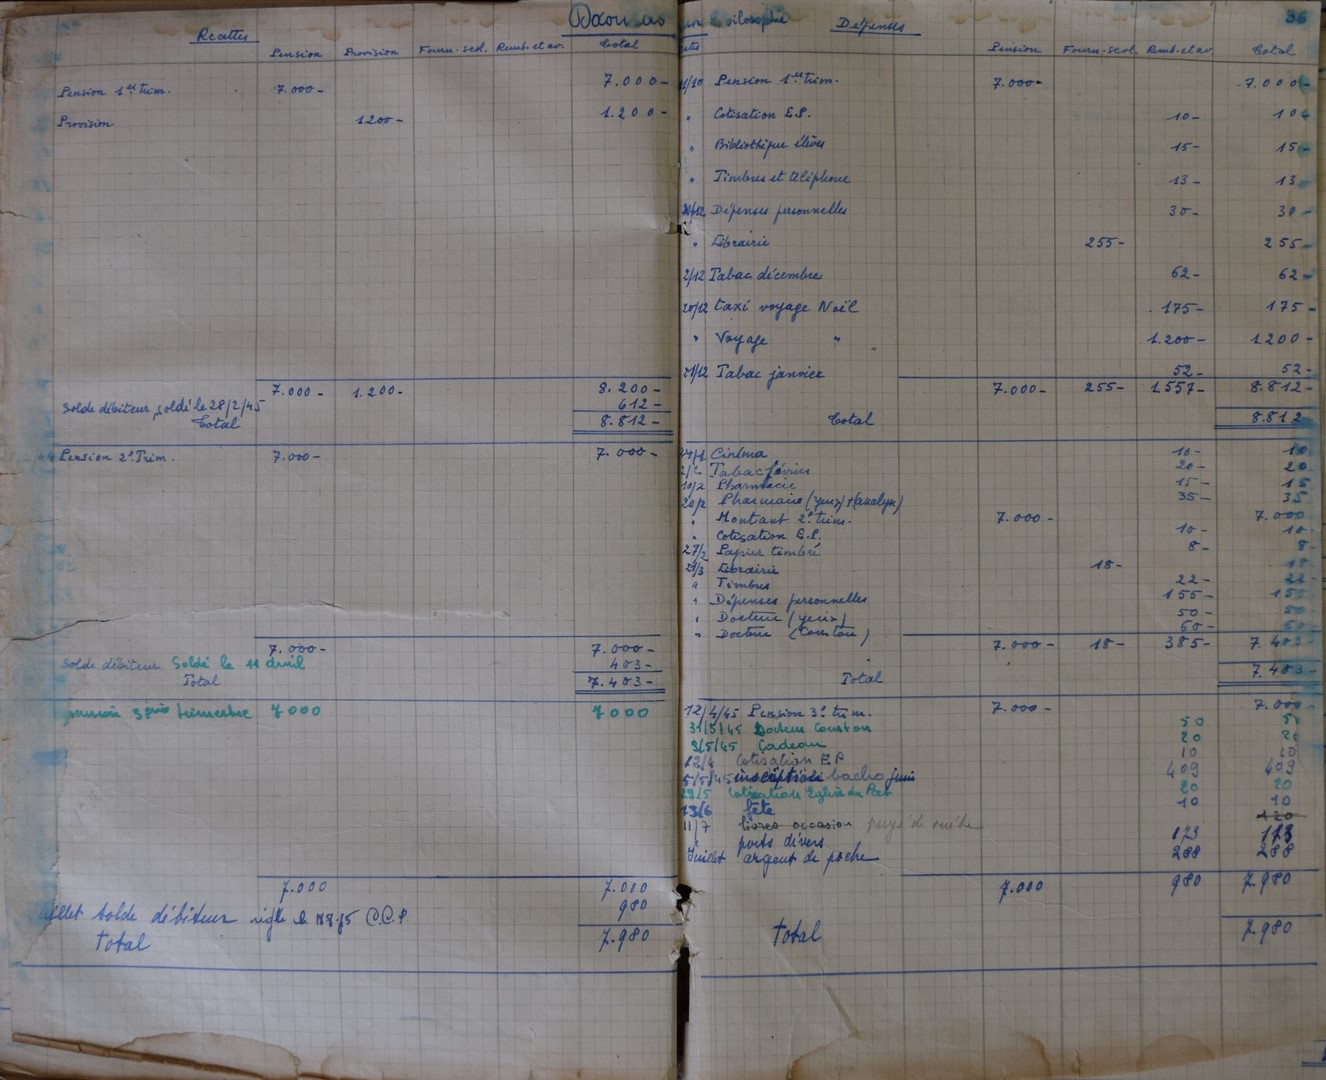 Recettes
Pension Provision Fourn. scol. Remb. et av. Total
Pension 1er trim. 7.000- 7.000-
Provision 1200- 1.200-
7.000- 1.200- 8.200-
Solde débiteur, soldé le 28/2/45 612-
Total 8.812-
Pension 2e Trim. 7.000- 7.000-
7.000- 7.000-
Solde débiteur Soldé le 11 avril 403-
Total 7.403-
pension 3ème trimestre 7000 7000
7.000 7.000
solde débiteur réglé le C.C.P. 980
Total 7.980
philosophie Dépenses 36
Pension Fourn. scol. Remb. et av. Total
Pension 1er trim. 7.000- 7.000-
" Cotisation E.P. 10- 10-
" Bibliothèque élèves 15- 15-
" Timbres et téléphone 13- 13-
Dépenses personnelles 30- 30-
" Librairie 255- 255-
2/12 Tabac décembre 62- 62-
20/12 taxi voyage Noël 175- 175-
" Voyage " 1.200- 1.200-
21/12 Tabac janvier 52- 52-
7.000- 255- 1.557- 8.812-
Total 8.812
Cinéma 10- 10
Tabac février 20- 20
10/2 Pharmacie 15- 15
Pharmacie (yeux) + (analyse) 35- 35
" Montant 2e trim. 7.000- 7.000
" Cotisation E.P. 10- 10-
27/2 Papier timbré 8- 8-
Librairie 18- 18-
" Timbres 22- 22-
" Dépenses personnelles 155- 155
" Docteur (yeux) 50- 50
" Docteur (Couston) 60- 60-
7.000- 18- 385- 7.403-
Total 7.403-
12/4/45 Pension 3e trim. 7.000- 7.000
31/5/45 Docteur Couston 50 50
3/5/45 Cadeau 20 20
12/4 Cotisation E P 10 10
5/5/45 inscription bacho juin 409 409
Cotisation Eglise du 20 20
13/6 fête 10 10
11/7 livres occasion payé de 120
ports divers 173 173
Juillet argent de poche 288 288
7.000 980 7.980
Total 7.980